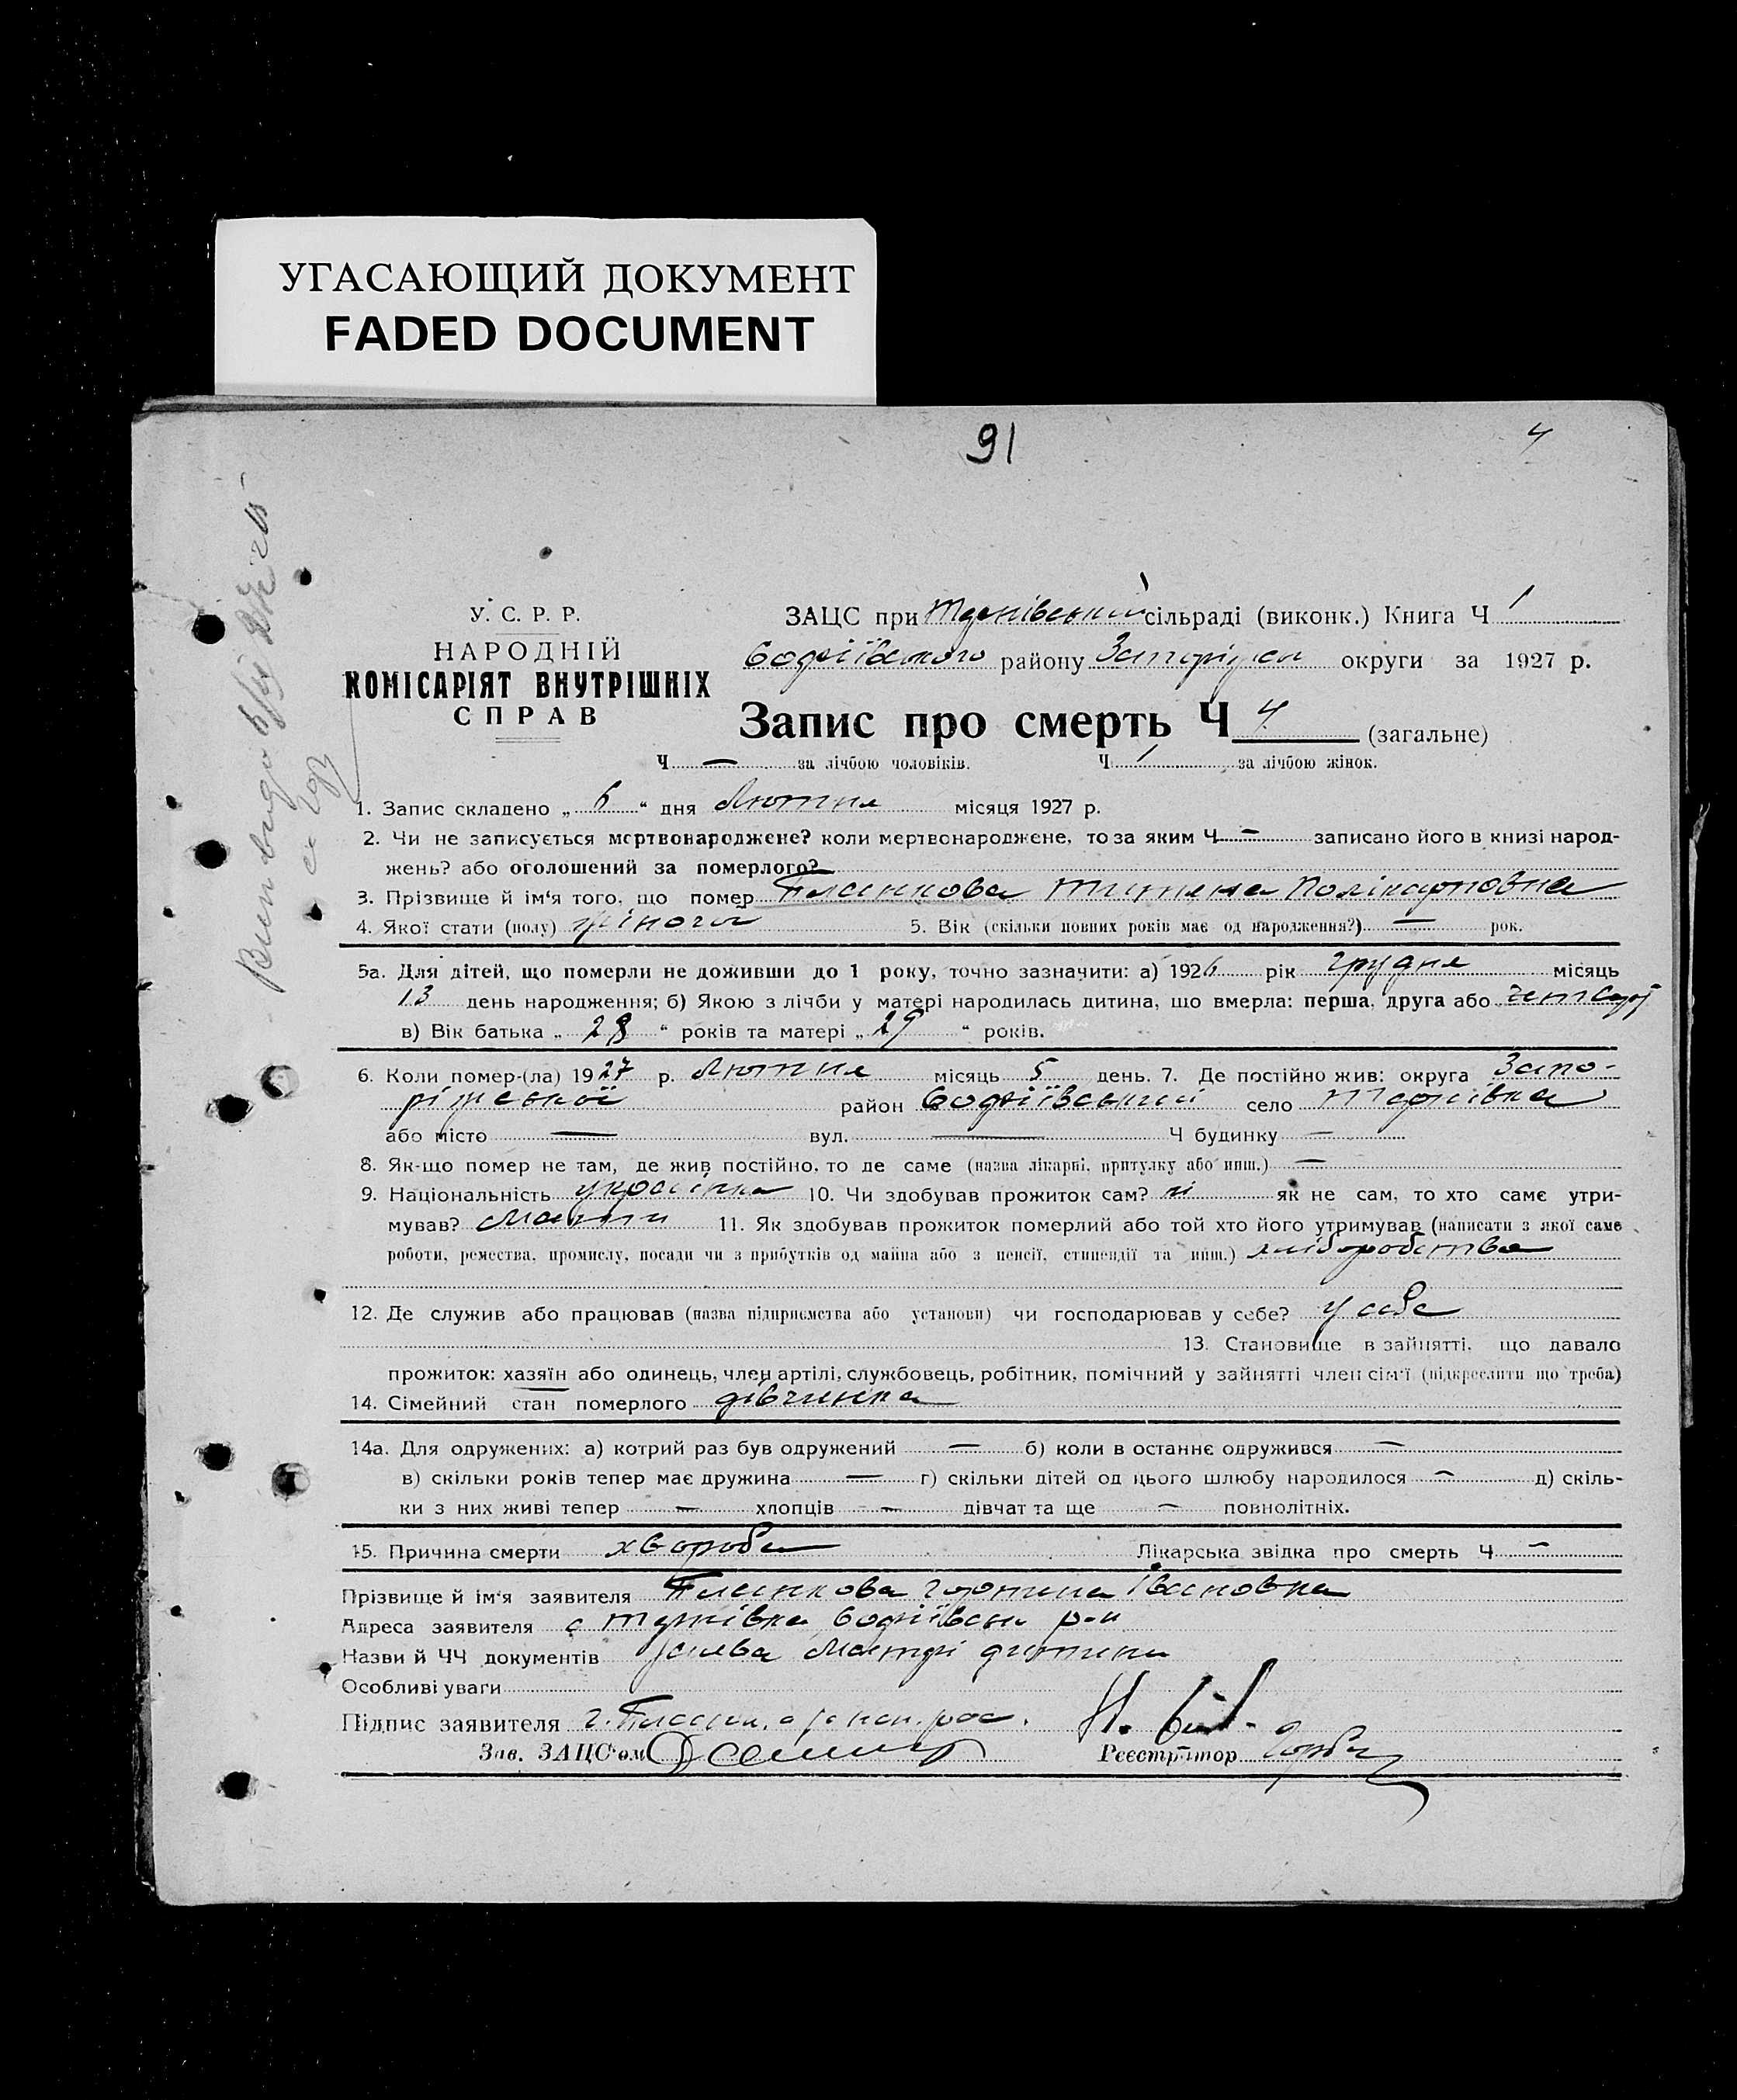 УГАСАЮЩИЙ ДОКУМЕНТ
FADED DOCUMENT
91
4
У. С. Р. Р.
НАРОДНІЙ
КОМІСАРІЯТ ВНУТРІШНІХ
СПРАВ
ЗАЦС при сільраді (виконк.) Книга Ч 1
району округи за 1927 р.
Запис про смерть Ч 4 (загальне)
Ч — за лічбою чоловіків. Ч 1 за лічбою жінок.
1. Запис складено „ 6 “ дня Лютня місяця 1927 р.
2. Чи не записується мертвонароджене? коли мертвонароджене, то за яким Ч — записано його в книзі народ-
жень? або оголошений за померлого?
3. Прізвище й ім'я того, що помер Полікарповна
4. Якої стати (полу) жіночої 5. Вік (скільки повних років має од народження?) — рок.
5а. Для дітей, що померли не доживши до 1 року, точно зазначити: а) 1926 рік грудня місяць
13 день народження; б) Якою з лічби у матері народилась дитина, що вмерла: перша, друга або
в) Вік батька „ 28 “ років та матері „ 29 “ років.
6. Коли помер-(ла) 1927 р. Лютня місяць 5 день. 7. Де постійно жив: округа Запо-
ріжської район село
або місто — вул. — Ч будинку —
8. Як-що помер не там, де жив постійно, то де саме (назва лікарні, притулку або инш.) —
9. Національність українка 10. Чи здобував прожиток сам? ні як не сам, то хто саме утри-
мував? Мати 11. Як здобував прожиток померлий або той хто його утримував (написати з якої саме
роботи, ремества, промислу, посади чи з прибутків од майна або з пенсії, стипендії та инш.) хліборобства
12. Де служив або працював (назва підприємства або установи) чи господарював у себе? у себе
13. Становище в зайнятті, що давало
прожиток: хазяїн або одинець, член артілі, службовець, робітник, помічний у зайнятті член сім'ї (підкреслити що треба)
14. Сімейний стан померлого дівчинка
14а. Для одружених: а) котрий раз був одружений — б) коли в останнє одружився —
в) скільки років тепер має дружина — г) скільки дітей од цього шлюбу народилося — д) скіль-
ки з них живі тепер — хлопців — дівчат та ще — повнолітніх.
15. Причина смерти хвороба Лікарська звідка про смерть Ч —
Прізвище й ім'я заявителя Івановна
Адреса заявителя с р-н
Назви й ЧЧ документів дитини
Особливі уваги
Підпис заявителя
Зав. ЗАЦС'ом Реєстратор